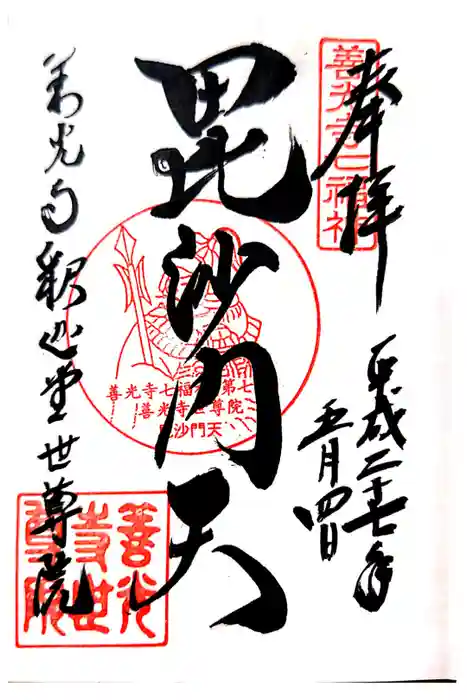 奉拝
善光寺七福神
平成二十七年
五月四日
毘沙門天
善光寺七福神第七
善光寺世尊院
毘沙門天
善光寺釈迦堂世尊院
善光
寺世
尊院